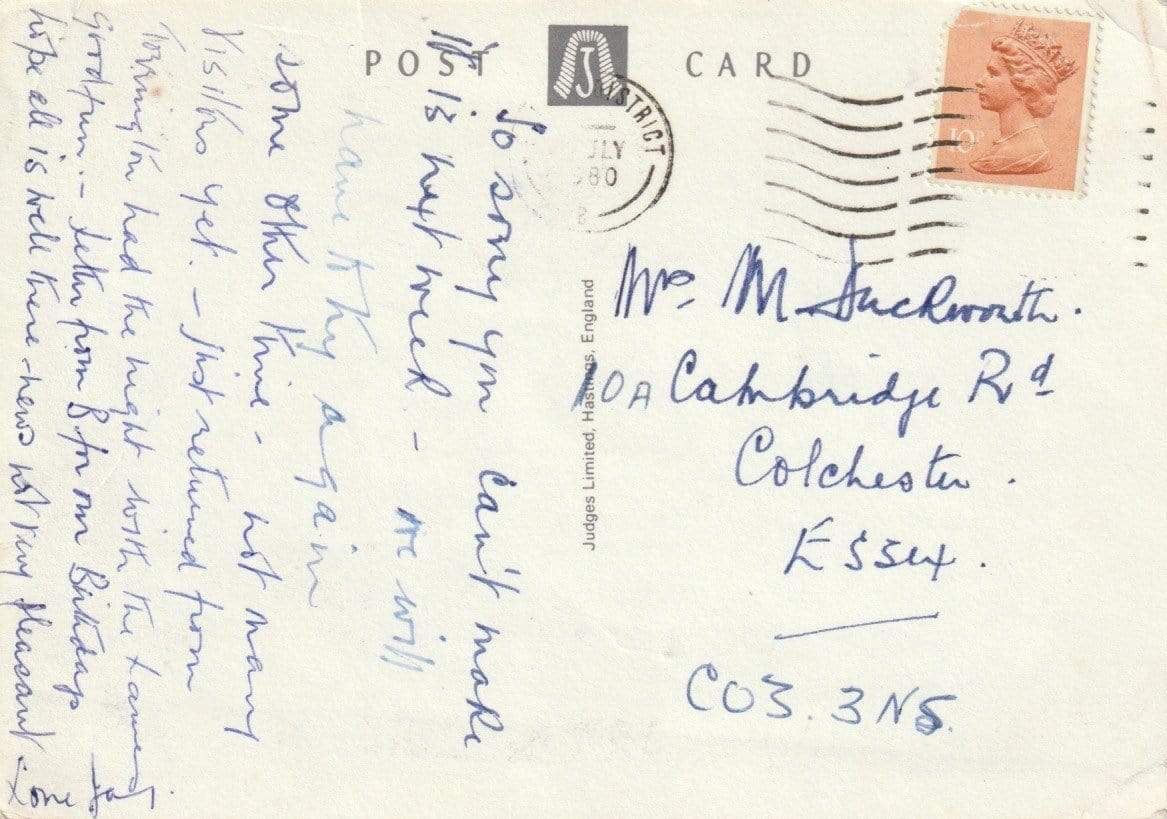 POST CARD
J
DISTRICT
JLY
980
10P
So sorry you can't make
it is next week - we will
have to try again
some other time - not many
Visitors yet. - Just returned from
Torrington had the night with the
good fun. - letter from B for our Birthdays
hope all is well there - news not very pleasant. Love
Judges Limited, Hastings, England
Mrs. M. Duckworth.
10A Cambridge Rd
Colchester.
Essex.
CO3. 3NS.